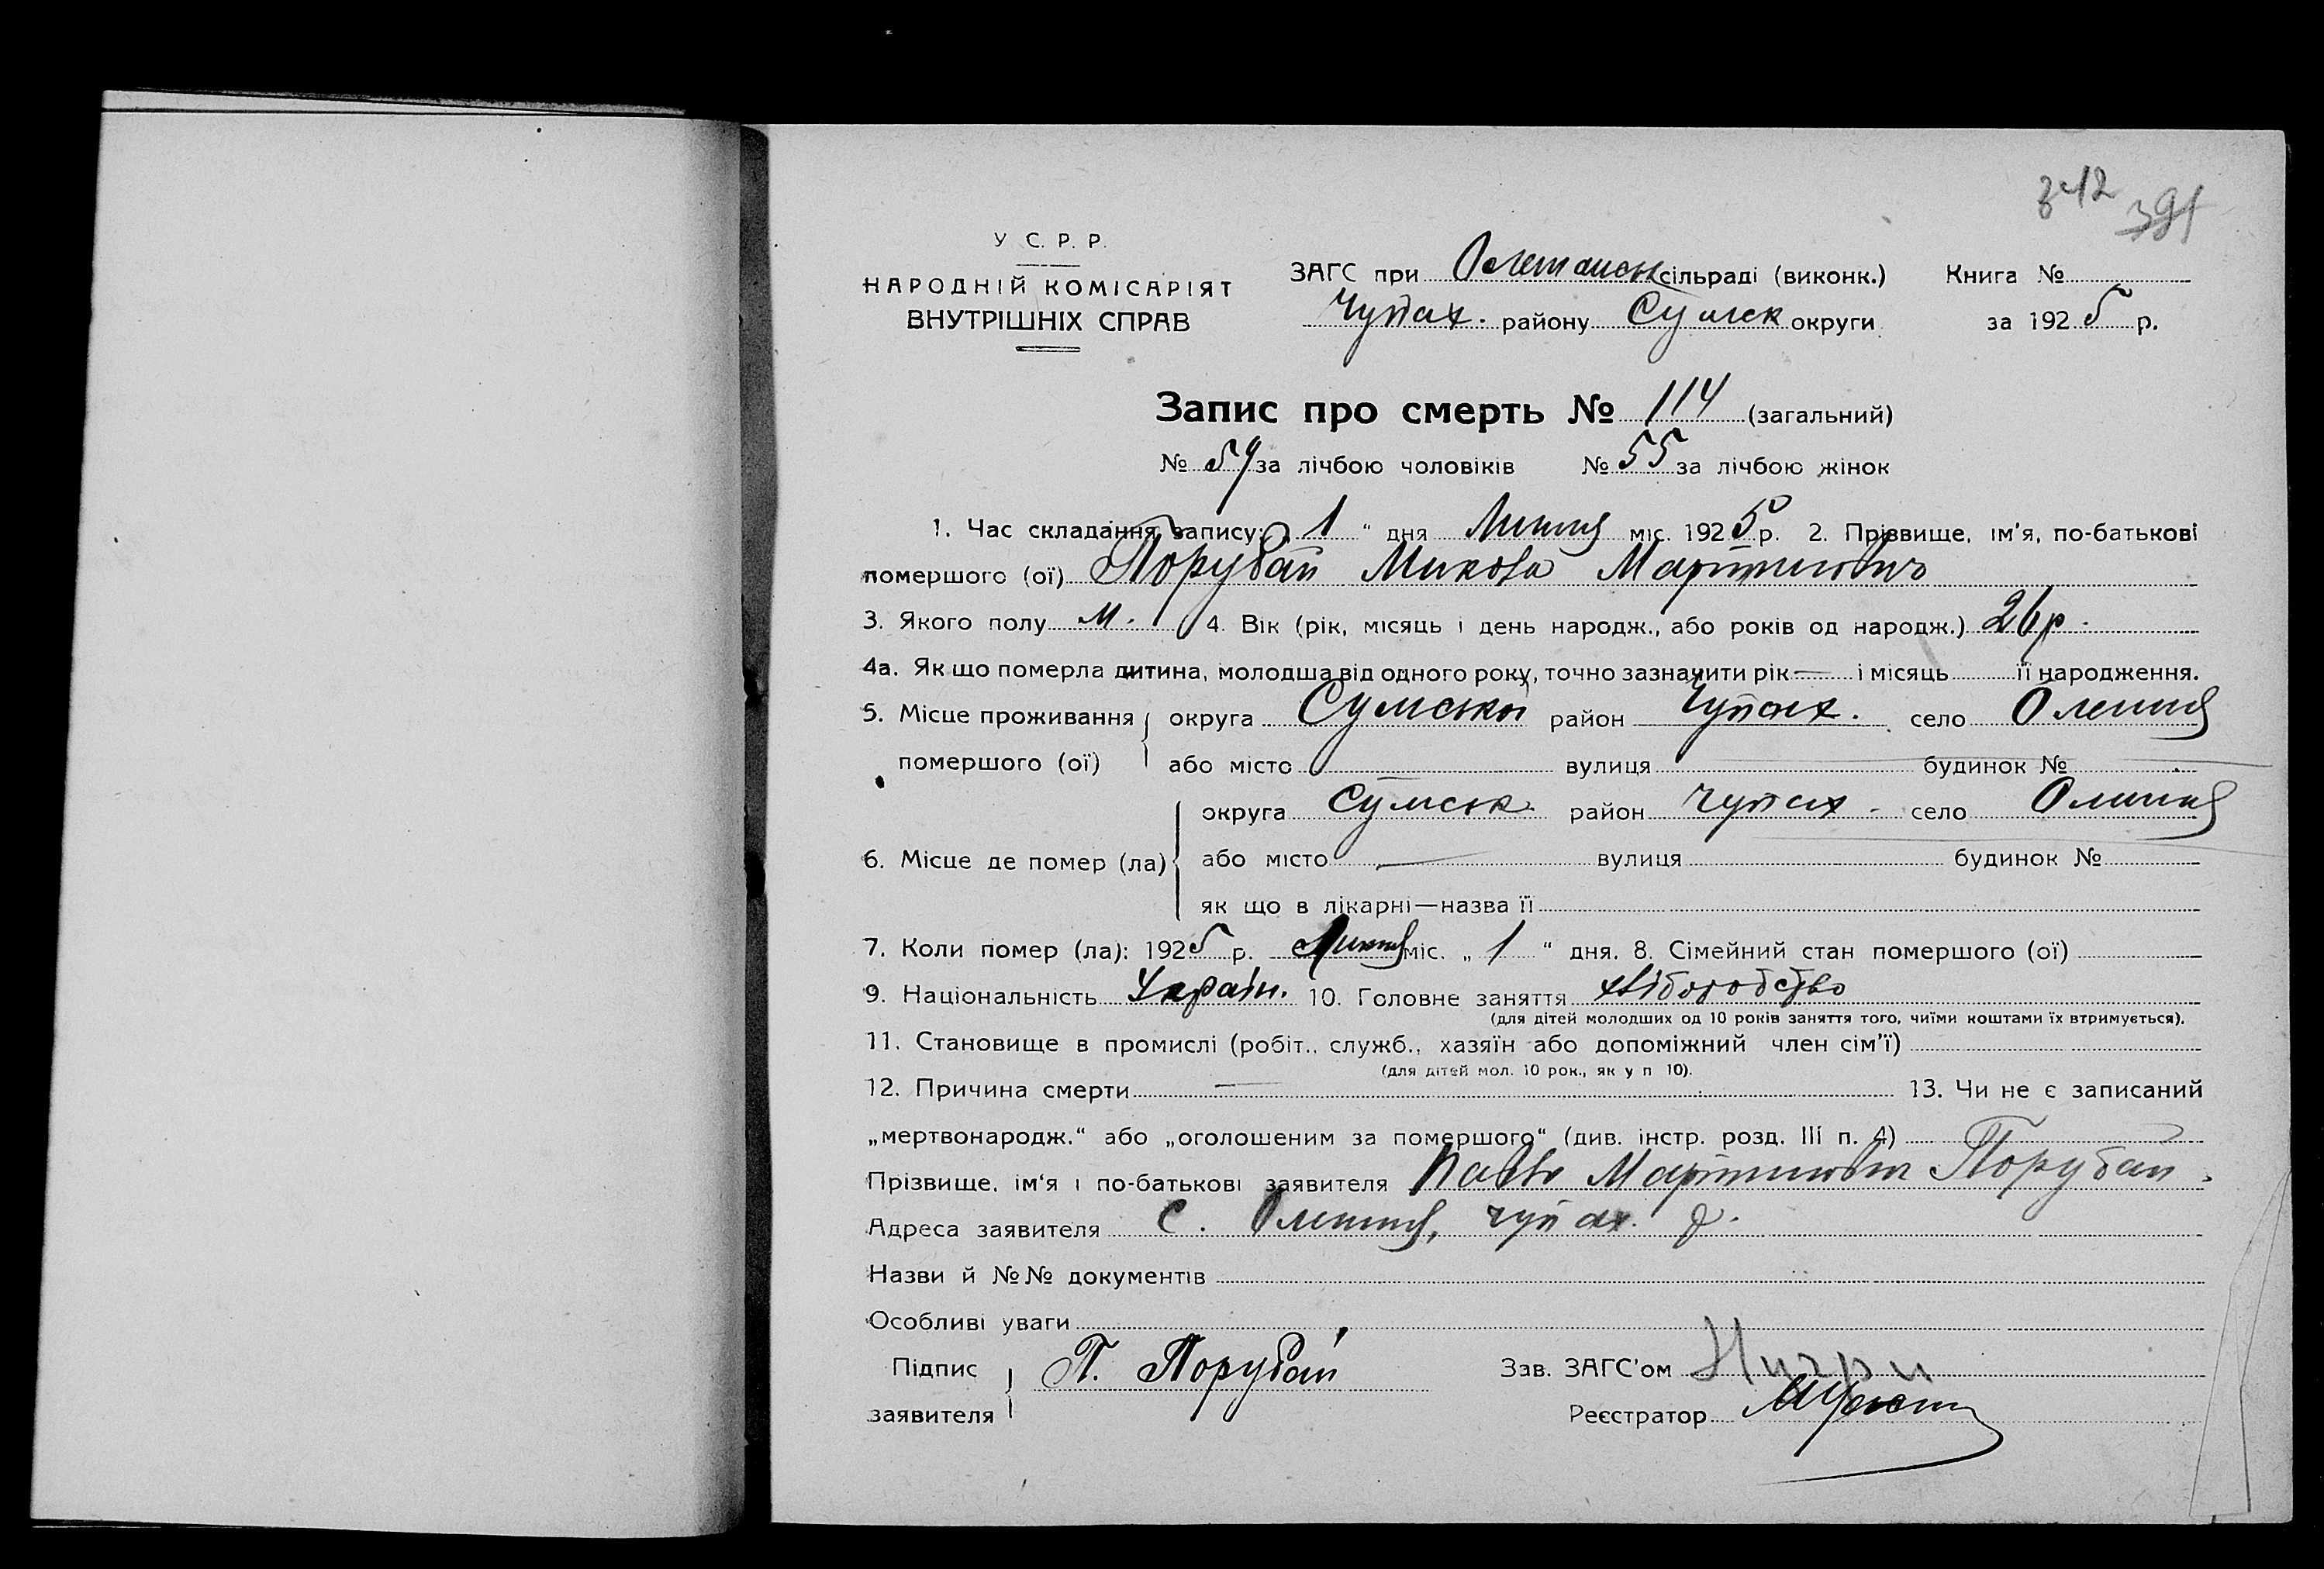 342 391
У С. Р. Р.
НАРОДНІЙ КОМІСАРІЯТ
ВНУТРІШНІХ СПРАВ
ЗАГС при сільраді (виконк.) Книга №
Чупах. району Сумск округи за 1925 р.
Запис про смерть № 114 (загальний)
№ 59 за лічбою чоловіків № 55 за лічбою жінок
1. Час складання запису: „ 1 “ дня Липня міс. 1925 р. 2. Прізвище, ім'я, по-батькові
помершого (ої) Порубай Микола Мартинович
3. Якого полу м. 4. Вік (рік, місяць і день народж., або років од народж.) 26 р.
4а. Як що померла дитина, молодша від одного року, точно зазначити рік — і місяць її народження.
5. Місце проживання округа Сумська район Чупах. село Олешня
помершого (ої) або місто вулиця будинок №
округа Сумськ. район Чупах. село Олешня
6. Місце де помер (ла) або місто — вулиця будинок №
як що в лікарні—назва її
7. Коли помер (ла): 1925 р. Липня міс. „ 1 “ дня. 8. Сімейний стан помершого (ої)
9. Національність Україн. 10. Головне заняття хліборобство
(для дітей молодших од 10 років заняття того, чиїми коштами їх втримується).
11. Становище в промислі (робіт., служб., хазяїн або допоміжний член сім'ї)
(для дітей мол. 10 рок., як у п 10).
12. Причина смерти — 13. Чи не є записаний
„мертвонародж.“ або „оголошеним за помершого“ (див. інстр. розд. III п. 4)
Прізвище, ім'я і по-батькові заявителя Павло Мартинович Порубай.
Адреса заявителя с. Олешня, Чупах. р.
Назви й №№ документів
Особливі уваги
Підпис П. Порубай Зав. ЗАГС'ом
заявителя Реєстратор